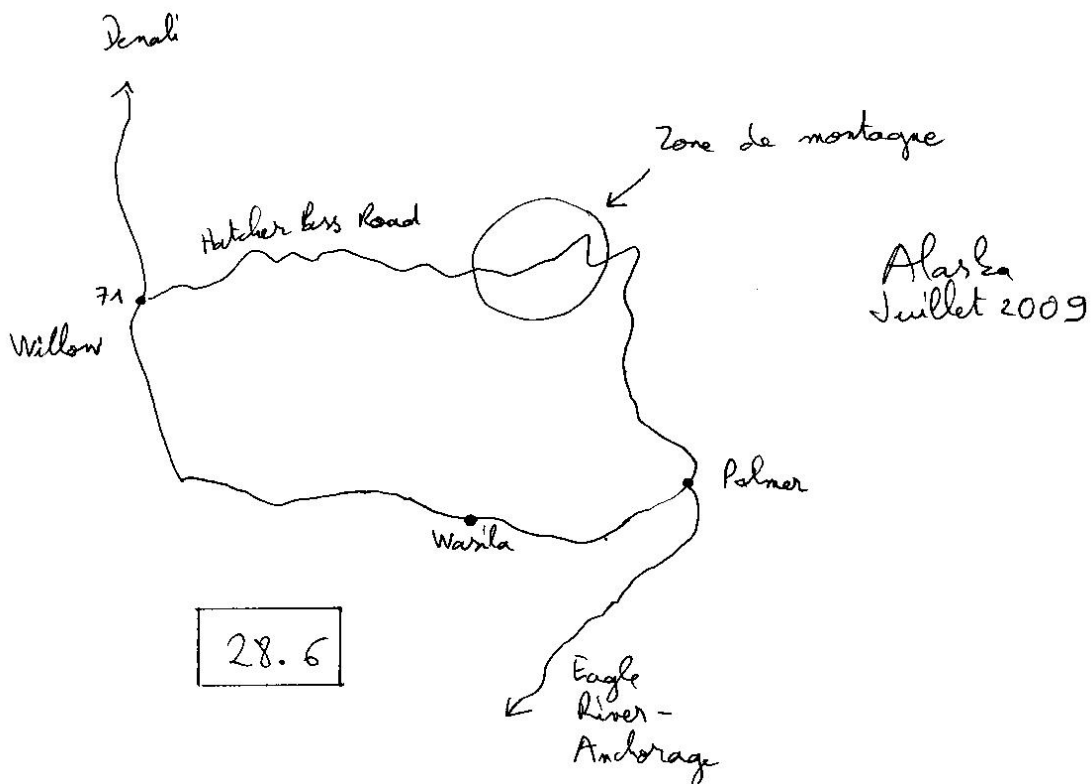 Denali
Zone de montagne
Hatcher Pass Road
Alaska
Juillet 2009
71
Willow
Palmer
Wasila
28.6
Eagle
River-
Anchorage